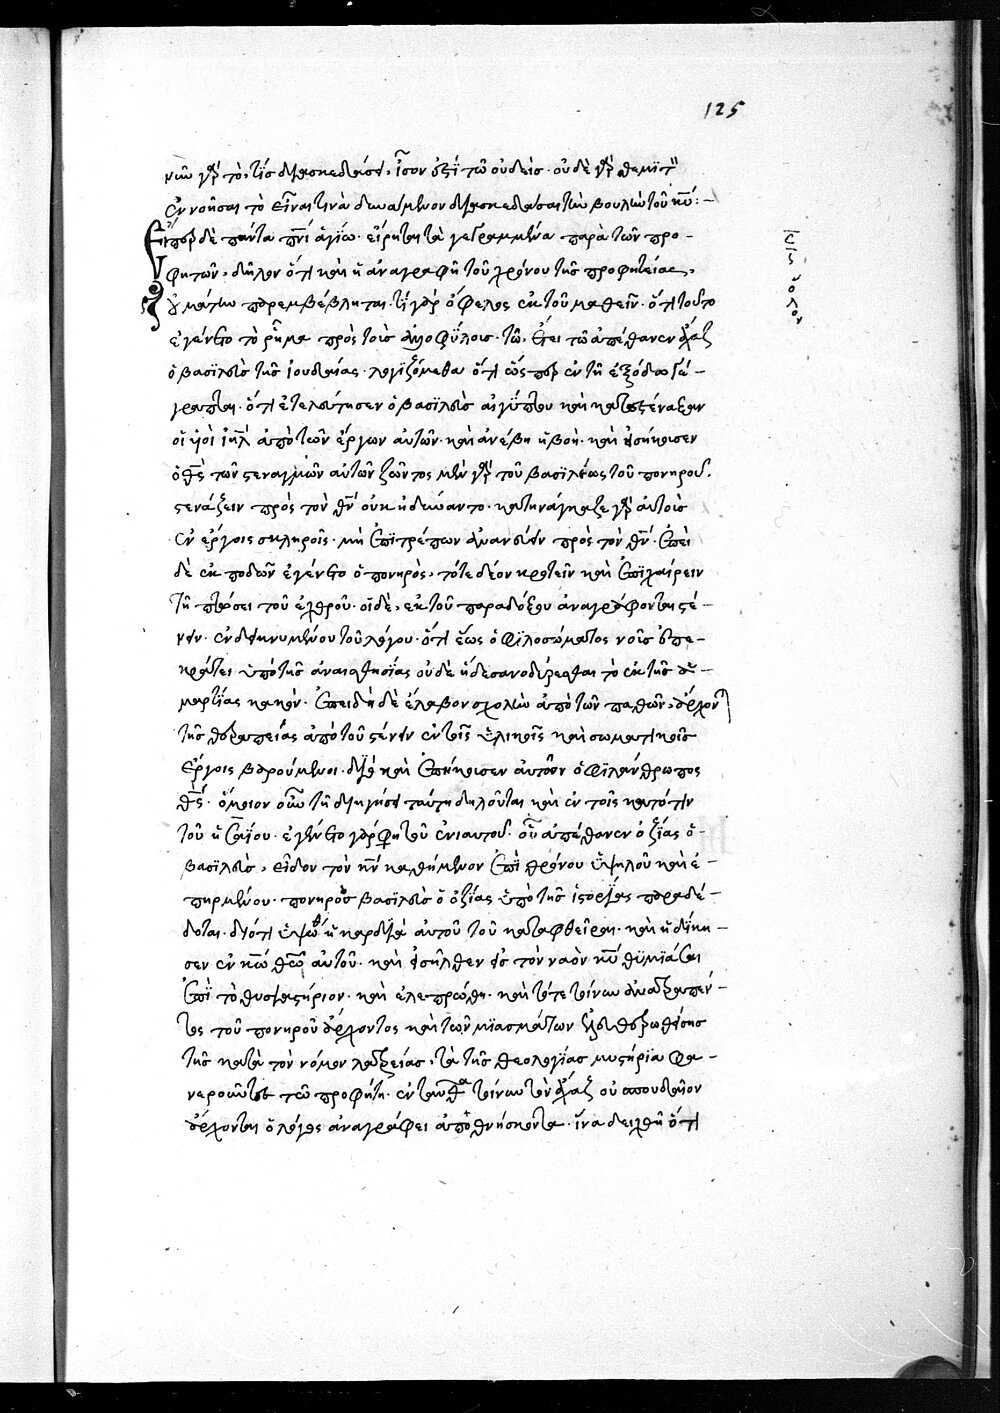 125
κων γὰρ τὸ, τίς διασκεδάσει, ἴσον ἐστὶ τῶ οὐδείς· οὐδὲ γὰρ θεμιτὸν
ἐννοῆσαι τὸ εἶναι τινὰ δυνάμενον διασκεδάσαι τὴν βουλὴν τοῦ κυ̅:—
Εἴπερ δὲ πάντα πνι̅ ἁγίω εἴρηται τὰ γεγραμμένα παρὰ τῶν προ-
φητῶν, δῆλον ὅτι καὶ ἡ ἀναγραφὴ τοῦ χρόνου τῆς προφητείας,
οὐ μάτην παρεμβέβληται. τί γὰρ ὄφελος ἐκ τοῦ μαθεῖν· ὅτι τοῦτο
ἐγένετο τὸ ῥῆμα πρὸς τοὺς ἀλλοφύλους· τῶ, ἔτει τῶ ἀπέθανεν ἄχαζ
ὁ βασιλεὺς τῆς ἰουδαίας. λογιζόμεθα ὅτι ὥσπερ ἐν τῆ ἐξόδω γέ-
γραπται· ὅτι ἐτελεύτησεν ὁ βασιλεὺς αἰγύπτου καὶ κατεστέναξαν
οἱ υἱοὶ ιηλ̅ ἀπὸ τῶν ἔργων αὐτῶν· καὶ ἀνέβη ἡ βοή· καὶ εἰσήκουσεν
ὁ θς̅ τῶν στεναγμῶν αὐτῶν ζῶντος μὲν γὰρ τοῦ βασιλέως τοῦ πονηροῦ,
στενάζειν πρὸς τὸν θν̅ οὐκ ἠδύναντο· κατηνάγκαζε γὰρ αὐτοὺς
ἐν ἔργοις σκληροῖς· μὴ ἐπιτρέπων ἀνανεύειν πρὸς τὸν θν̅· ἐπεὶ
δὲ ἐκ ποδῶν ἐγένετο ὁ πονηρὸς, τότε δέον κροτεῖν καὶ ἐπιχαίρειν
τῆ πτώσει τοῦ ἐχθροῦ· οἱ δὲ, ἐκ τοῦ παραδόξου ἀναγράφονται στέ-
νειν· ἐνδεικνυμένου τοῦ λόγου· ὅτι ἕως ὁ φιλοσώματος νοῦς ἐπε-
κράτει ὑπὸ τῆς ἀναισθησίας οὐδὲ ἤδεσαν ὀδύρεσθαι τὸ ἐκ τῆς ἁ-
μαρτίας κακόν. ἐπειδὴ δὲ ἔλαβον σχολὴν ἀπὸ τῶν παθῶν, ἄρχονται
τῆς θεραπείας ἀπὸ τοῦ στένειν ἐν τοῖς ὑλικοῖς καὶ σωματικοῖς
ἔργοις βαρούμενοι· διὸ καὶ ἐπήκουσεν αὐτῶν ὁ φιλάνθρωπος
θς̅. ὅμοιον οὖν τῆ διηγήσει ταύτη δηλοῦται καὶ ἐν τοῖς κατόπιν
τοῦ ἡσαΐου. ἐγένετο γάρ φη τοῦ ἐνιαυτοῦ· οὗ ἀπέθανεν ὀζίας ὁ
βασιλεὺς, εἶδον τὸν κν̅ καθήμενον ἐπὶ θρόνου ὑψηλοῦ καὶ ἐ-
πηρμένου. πονηρὸς βασιλεὺς ὁ ὀζίας ὑπὸ τῆς ἱστορίας παραδέ-
δοται. διότι ὑψώθη ἡ καρδία αὐτοῦ τοῦ καταφθεῖραι· καὶ ἠδίκη-
σεν ἐν κω̅ θεω̅ αὐτοῦ· καὶ εἰσῆλθεν εἰς τὸν ναὸν κυ̅ θυμιάσαι
ἐπὶ τὸ θυσιαστήριον· καὶ ἐλεπρώθη. καὶ τότε τοίνυν ἀνατραπέν-
τος τοῦ πονηροῦ ἄρχοντος καὶ τῶν μιασμάτων ἐλευθερωθείσης
τῆς κατὰ τὸν νόμον λατρείας, τὰ τῆς θεολογίας μυστήρια φα-
νεροῦται τῶ προφήτη. ἐνταῦθα τοίνυν τὸν ἄχαζ οὐ σπουδαῖον
ἄρχοντα ὁ λόγος ἀναγράφει ἀποθνήσκοντα· ἵνα δειχθῆ ὅτι